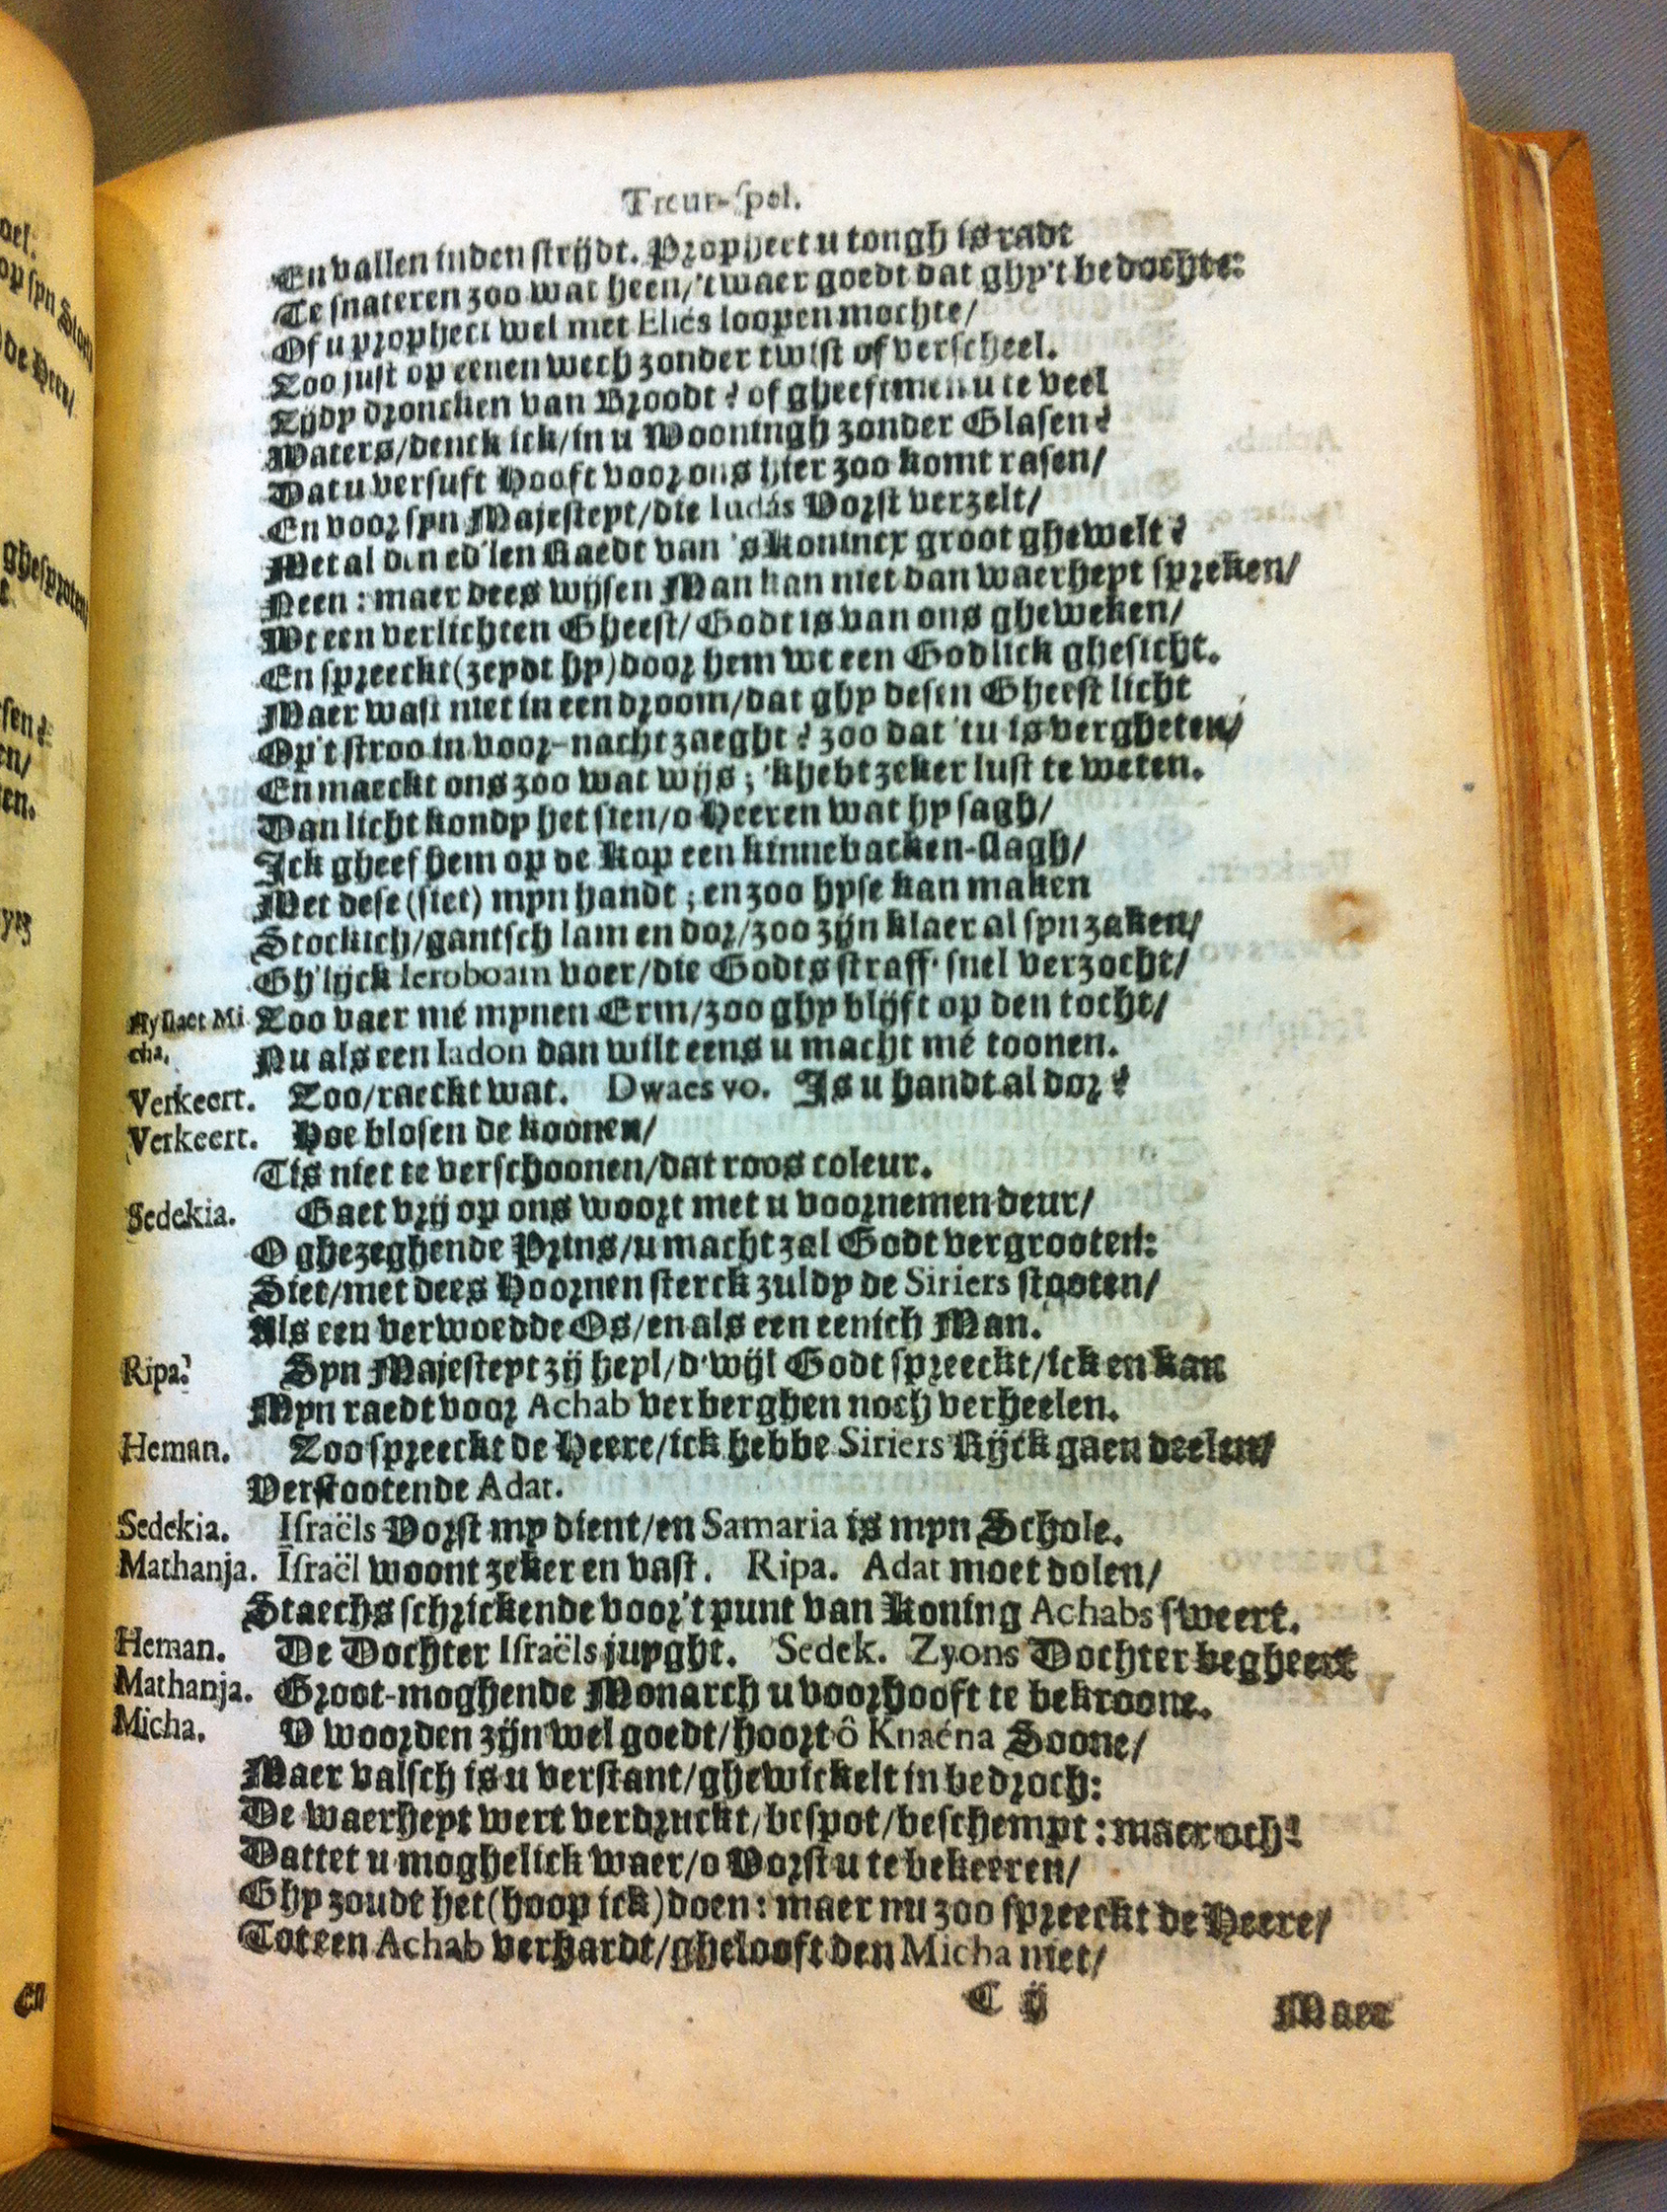 Treur-spel.
En vallen inden strijdt. Propheet u tongh is radt
Te snateren zoo wat heen/'t waer goedt dat ghy't bedochte:
Of u propheet wel met Eliés loopen mochte/
Zoo just op eenen wech zonder twist of verscheel.
Zijdy droncken van Broodt? of gheeftmen u te veel
Waters/denck ick/in u Wooningh zonder Glasen?
Dat u versuft Hooft voor ons hier zoo komt rasen/
En voor syn Majesteyt/die Iudás Vorst verzelt/
Met al den ed'len Raedt van 's Konincx groot ghewelt?
Neen: maer dees wijsen Man kan niet dan waerheyt spreken/
Wt een verlichten Gheest/Godt is van ons gheweken/
En spreeckt (zeydt hy) door hem wt een Godlick ghesicht.
Maer wast niet in een droom/dat ghy desen Gheest licht
Op't stroo in voor-nacht zaeght? zoo dat 'tu is vergheten/
En maeckt ons zoo wat wijs; 'khebt zeker lust te weten.
Dan licht kondy het sien/o Heeren wat hy sagh/
Ick gheef hem op de Kop een kinnebacken-slagh/
Met dese (siet) myn handt; en zoo hyse kan maken
Stockich/gantsch lam en dor/zoo zijn klaer al syn zaken/
Gh'lijck Ieroboam voer/die Godts straff' snel verzocht/
Hy slaet Mi Zoo vaer mé mynen Erm/zoo ghy blijft op den tocht/
cha. Nu als een Iadon dan wilt eens u macht mé toonen.
Verkeert. Zoo/raeckt wat. Dwaes vo. Is u handt al dor?
Verkeert. Hoe blosen de koonen/
Tis niet te verschoonen/dat roos coleur.
Sedekia. Gaet vrij op ons woort met u voornemen deur/
O ghezeghende Prins/u macht zal Godt vergrooten:
Siet/met dees Hoornen sterck zuldy de Siriers stooten/
Als een verwoedde Os/en als een eenich Man.
Ripa. Syn Majesteyt zij heyl/d'wijl Godt spreeckt/ick en kan
Myn raedt voor Achab verberghen noch verheelen.
Heman. Zoo spreeckt de Heere/ick hebbe Siriers Rijck gaen deelen/
Verstootende Adat.
Sedekia. Israëls Vorst my dient/en Samaria is myn Schole.
Mathanja. Israël woont zeker en vast. Ripa. Adat moet dolen/
Staechs schrickende voor't punt van Koning Achabs sweert.
Heman. De Dochter Israëls juyght. Sedek. Zyons Dochter begheert
Mathanja. Groot-moghende Monarch u voorhooft te bekroone.
Micha. V woorden zijn wel goedt/hoort ô Knaéna Soone/
Maer valsch is u verstant/ghewickelt in bedroch:
De waerheyt wert verdruckt/bespot/beschempt: maer och!
Dattet u moghelick waer/o Vorst u te bekeeren/
Ghy zoudt het (hoop ick) doen: maer nu zoo spreeckt de Heere/
Tot een Achab verhardt/ghelooft den Micha niet/
C ij Maer